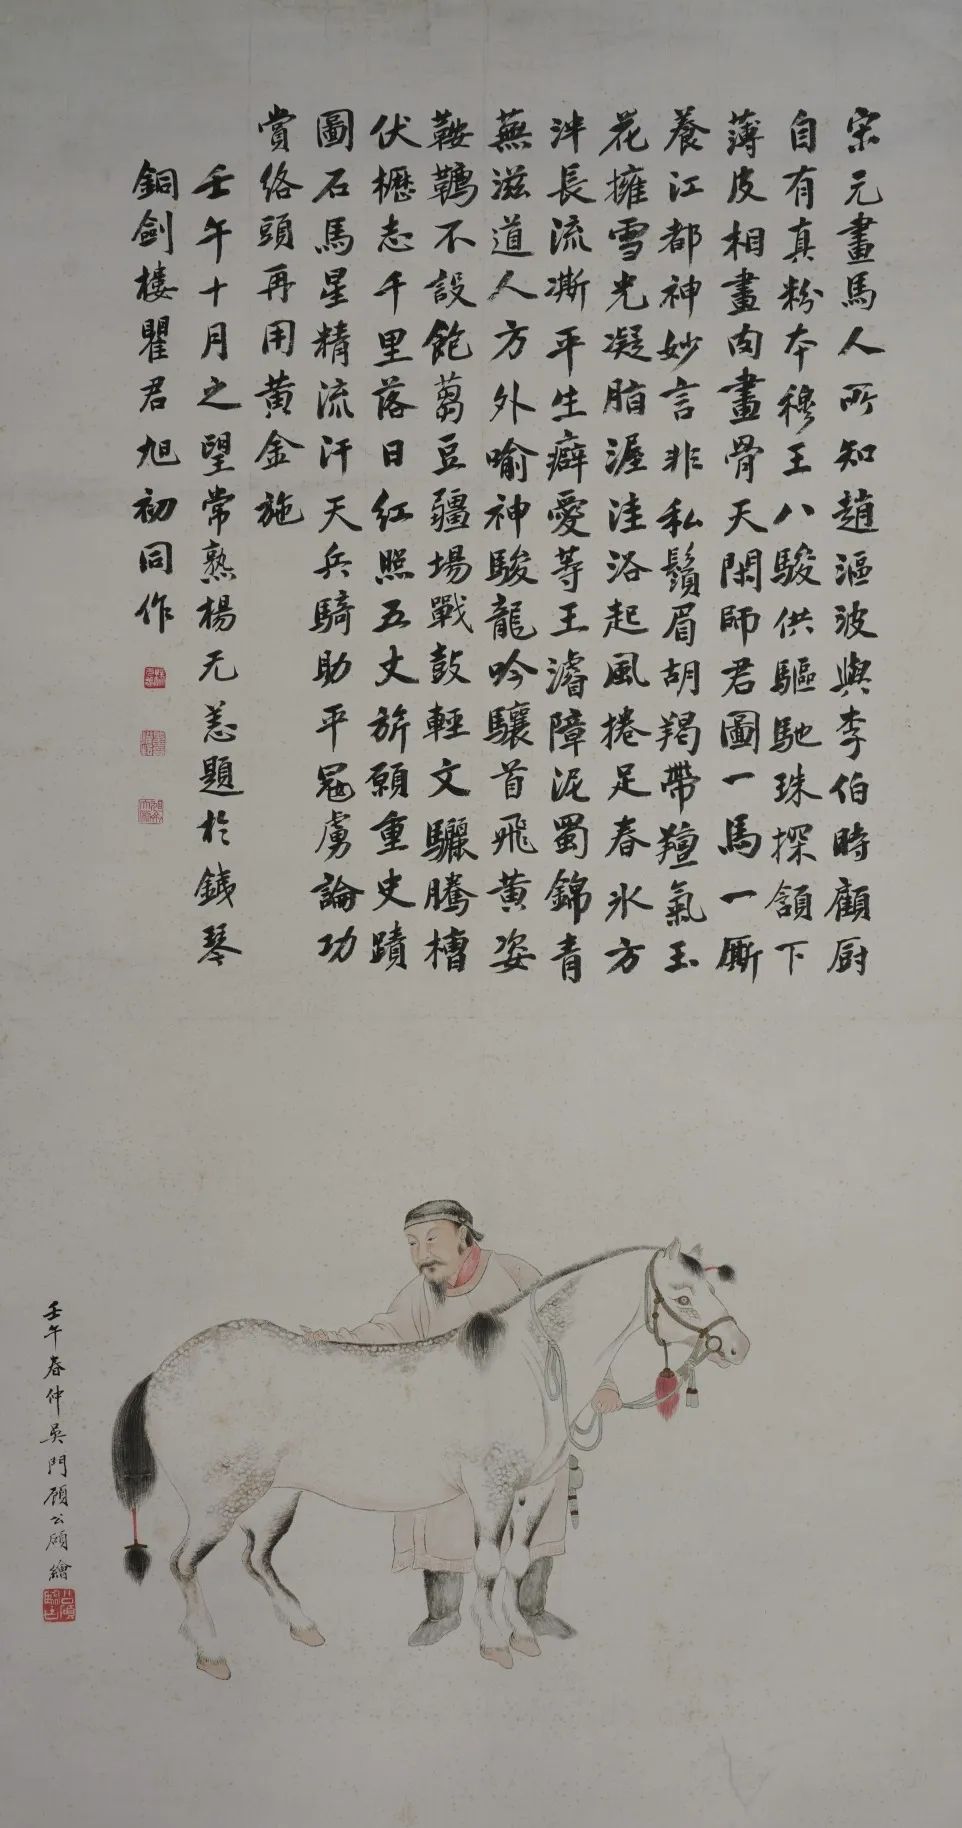 宋元畫馬人所知趙漚波與李伯時顧厨
自有真粉本穆王八駿供驅馳珠探頷下
薄皮相畫肉畫骨天閑師君圖一馬一厮
養江都神妙言非私鬚眉胡羯帶羶氣玉
花擁雪光凝脂渥洼浴起風捲足春氷方
泮長流澌平生癖愛等王濬障泥蜀錦青
蕪滋道人方外喻神駿龍吟驤首飛黃姿
鞍韉不設飽蒭豆疆場戰鼓輕文驪騰槽
伏櫪志千里落日紅照五丈旂願重史蹟
圖石馬星精流汗天兵騎助平冦虜論功
賞絡頭再用黃金施
壬午十月之望常熟楊无恙題於錢琴
銅劍樓瞿君旭初同作
壬午春仲吳門顧公碩繪